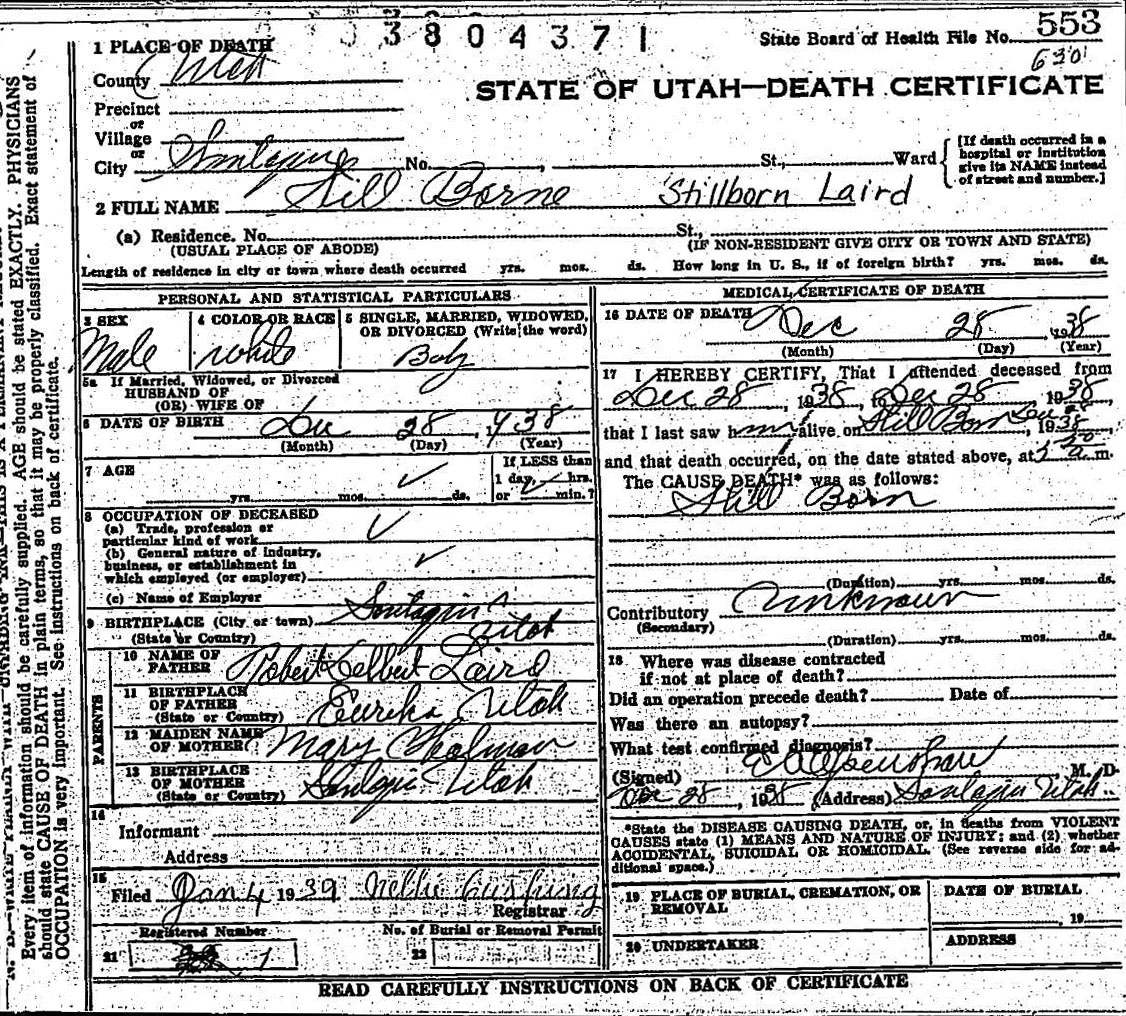 3804371
State Board of Health File No. 553
630
STATE OF UTAH—DEATH CERTIFICATE
1 PLACE OF DEATH
County Utah
Precinct
or
Village
or
City Santaquin No. , St., Ward
[If death occurred in a hospital or institution give its NAME instead of street and number.]
2 FULL NAME Still Borne Stillborn Laird
(a) Residence. No. St.,
(USUAL PLACE OF ABODE) (IF NON-RESIDENT GIVE CITY OR TOWN AND STATE)
Length of residence in city or town where death occurred yrs. mos. ds. How long in U. S., if of foreign birth? yrs. mos. ds.
PERSONAL AND STATISTICAL PARTICULARS
3 SEX 4 COLOR OR RACE 5 SINGLE, MARRIED, WIDOWED,
OR DIVORCED (Write the word)
Male White Baby
5a If Married, Widowed, or Divorced
HUSBAND OF
(OR) WIFE OF
6 DATE OF BIRTH Dec 28, 1938
(Month) (Day) (Year)
7 AGE If LESS than
1 day, hrs.
yrs. mos. ds. or min.?
8 OCCUPATION OF DECEASED
(a) Trade, profession or
particular kind of work
(b) General nature of industry,
business, or establishment in
which employed (or employer)
(c) Name of Employer
9 BIRTHPLACE (City or town) Santaquin
(State or Country) Utah
PARENTS
10 NAME OF
FATHER Robert Delbert Laird
11 BIRTHPLACE
OF FATHER
(State or Country) Eureka Utah
12 MAIDEN NAME
OF MOTHER Mary
13 BIRTHPLACE
OF MOTHER
(State or Country) Santaquin Utah
14
Informant
Address
15
Filed Jan 4 1939 Nellie Cushing
Registrar
Registered Number No. of Burial or Removal Permit
21 1 22
MEDICAL CERTIFICATE OF DEATH
16 DATE OF DEATH Dec 28 1938
(Month) (Day) (Year)
17 I HEREBY CERTIFY, That I attended deceased from
Dec 28, 1938, to Dec 28 1938
that I last saw him alive on Still Born Dec 28, 1938,
and that death occurred, on the date stated above, at 5 20 a m.
The CAUSE DEATH* was as follows:
Still Born
(Duration) yrs. mos. ds.
Contributory Unknown
(Secondary)
(Duration) yrs. mos. ds.
18 Where was disease contracted
if not at place of death?
Did an operation precede death? Date of
Was there an autopsy?
What test confirmed diagnosis?
(Signed) , M. D.
Dec 28, 1938 (Address) Santaquin Utah
*State the DISEASE CAUSING DEATH, or, in deaths from VIOLENT
CAUSES state (1) MEANS AND NATURE OF INJURY; and (2) whether
ACCIDENTAL, SUICIDAL OR HOMICIDAL. (See reverse side for ad-
ditional space.)
19 PLACE OF BURIAL, CREMATION, OR
REMOVAL
DATE OF BURIAL
, 19
20 UNDERTAKER ADDRESS
READ CAREFULLY INSTRUCTIONS ON BACK OF CERTIFICATE
Every item of information should be carefully supplied. AGE should be stated EXACTLY. PHYSICIANS
should state CAUSE OF DEATH in plain terms, so that it may be properly classified. Exact statement of
OCCUPATION is very important. See instructions on back of certificate.